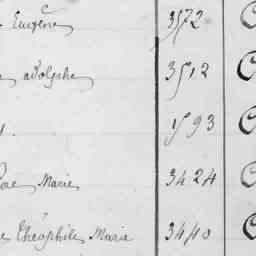 Eugène 3572 C
adolphe 3512 C
1593 C
Marie 3424 C
Théophile Marie 3440 C